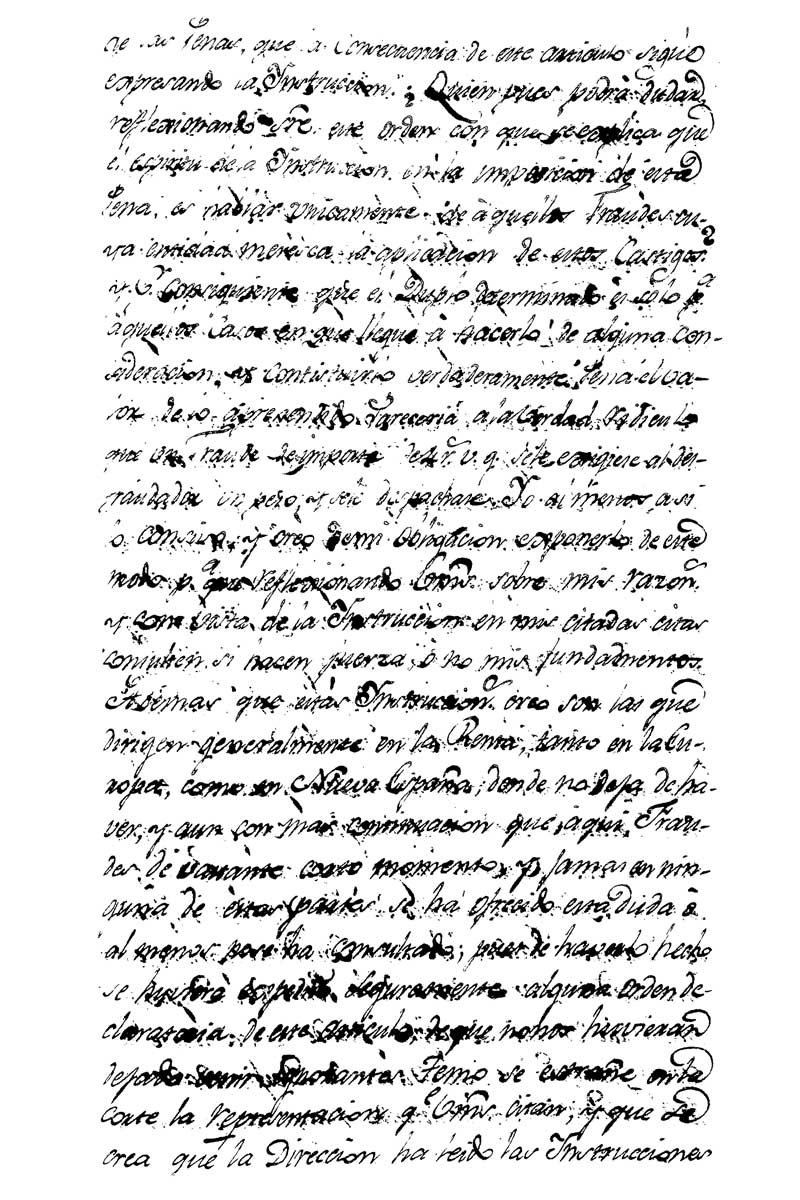 de las Penas, que à Consecuencia de este articulo sigue
expresando la Instruccion. ¿Quien pues podrà dudar,
reflexionando sre. este orden con que se explica que
el espiritu de la Instruccion en la imposicion de esta
Pena, es hablar unicamente de aquellos Fraudes cu-
ya entidad meresca la aplicacion de estos Castigos?
y pr. Consiguiente que el Duplo determinado es solo pa.
aquellos Casos en que llegue à hacerlo de alguna con-
sideracion, y Constituirlo verdaderamente Pena el va-
lor de lo aprehendido. Pareceria a la verdad ridiculo
que en Fraude de importe de 4 rr. v. q. se le exigiese al de-
fraudador un peso, y se le despachase. Yo al menos asi
lo Consivo, y creo de mi Obligacion exponerlo de este
modo pa. que reflexionando Vms. sobre mis razons.
y con vista de la Instruccion en mis citadas citas
consulten si hacen fuerza, ó no mis fundamentos.
Ademas que estas Instruccions. creo son las que
dirigen generalmente en la Renta, tanto en la Eu-
ropa, como en Nueva España, donde no deja de ha-
ver, y aun con mas continuacion que aqui, Frau-
des de vastante corto momento, y Jamas en nin-
guna de estas partes se ha ofrecido esta duda ó
al menos pase ha Consultado, pues de haverlo hecho
se huviera expedido seguramente alguna orden de-
claratoria de este Articulo, de que no nos huvieran
dejado ignorantes. Temo se estrañe en la
corte la representacion qe. Vms. citan, y que se
crea que la Direccion ha leido las Instrucciones